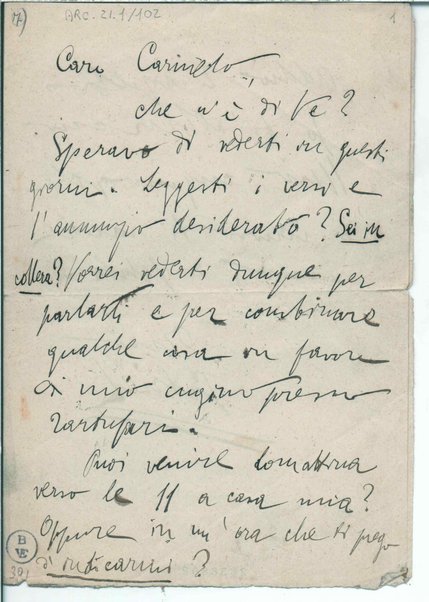 7) ARC. 21.1/102 1
Caro Carmelo,
che n'è di Te?
Speravo di vederti in questi
giorni. Leggesti i versi e
l'annunzio desiderato? Sei in
collera? Vorrei vederti dunque per
parlarti e per combinare
qualche cosa in favore
di mio cugino presso
Tartufari.
Puoi venire domattina
verso le 11 a casa mia?
Oppure in un'ora che ti prego
d'indicarmi?
B
VE